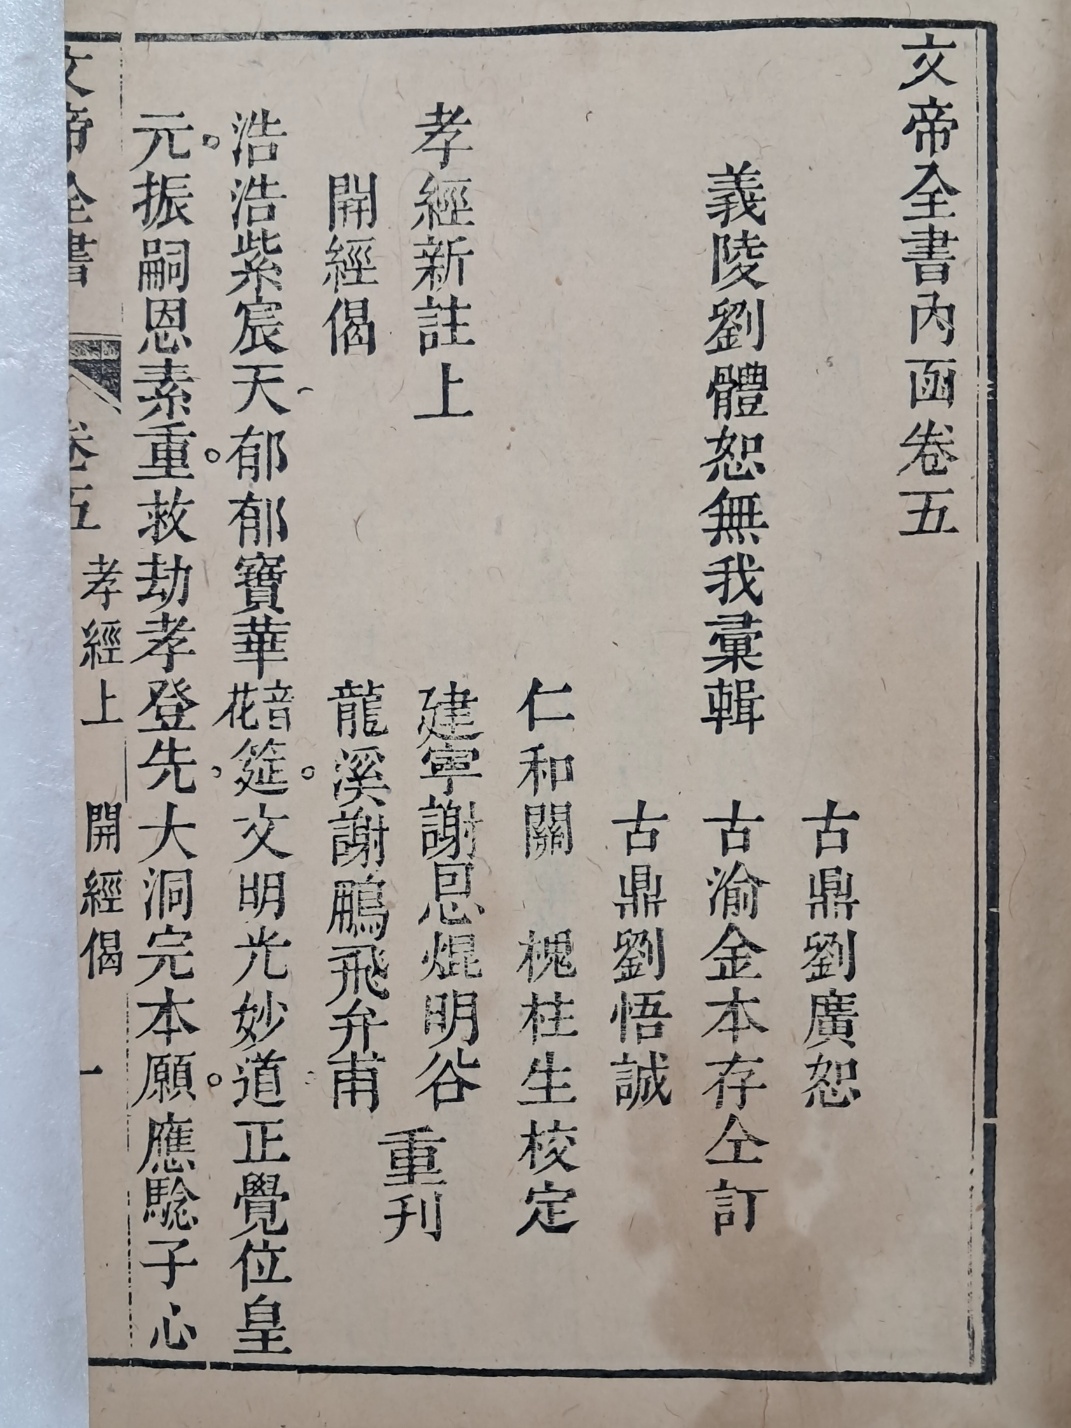 文帝全書內函卷五
古鼎劉廣恕
義陵劉體恕無我彙輯
古渝金本存仝訂
古鼎劉悟誠
仁和關 槐柱生校定
孝經新註上
建寧謝恩焜明谷
開經偈
龍溪謝鵬飛弁甫
重刊
浩浩紫宸天郁郁寶華音花筵。文明光妙道正覺位皇
元。振嗣恩素重。救劫孝登先、大洞完本願。應騐子心
文帝全書 卷五 孝經上 開經偈 一